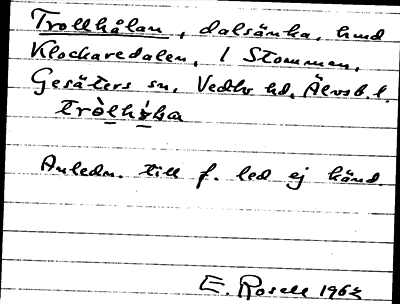 Trollhålan, dalsänka, hund
Klockaredalen, 1 Stommen,
Gesäters sn, Vedbo hd, Älvsb. l.
Anledn. till f. led ej känd.
E. Rosell 1962